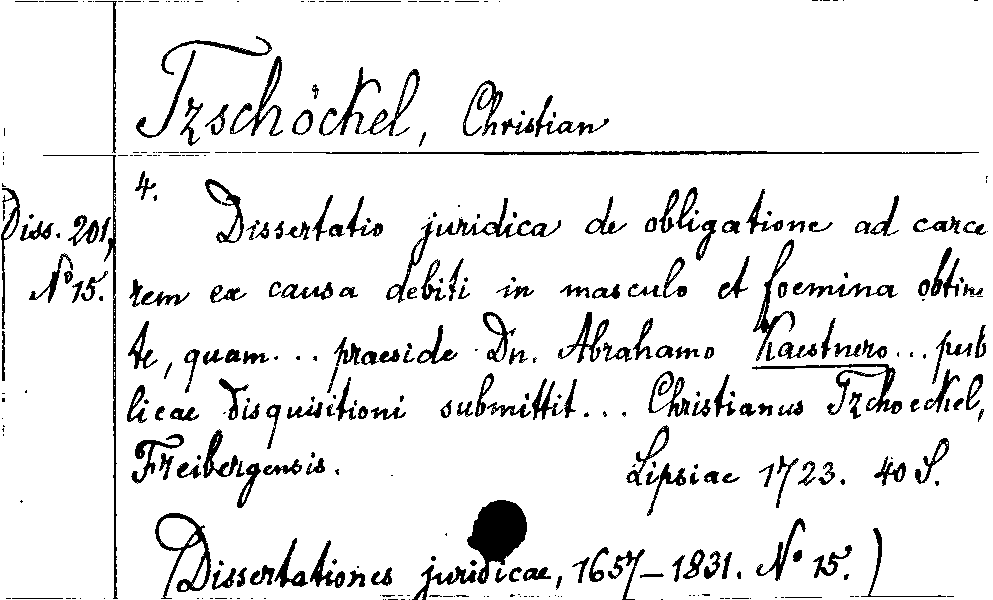 Tzschöckel, Christian
4.
Diss. 201, Dissertatio juridica de obligatione ad carce
No 15. rem ex causa debiti in masculo et foemina obtinen
te, quam... praeside Dn. Abrahamo Kaestnero... pub
licae disquisitioni submittit... Christianus Tzschoeckel,
Freibergensis. Lipsiae 1723. 40 S.
(Dissertationes juridicae, 1657-1831. No 15.)